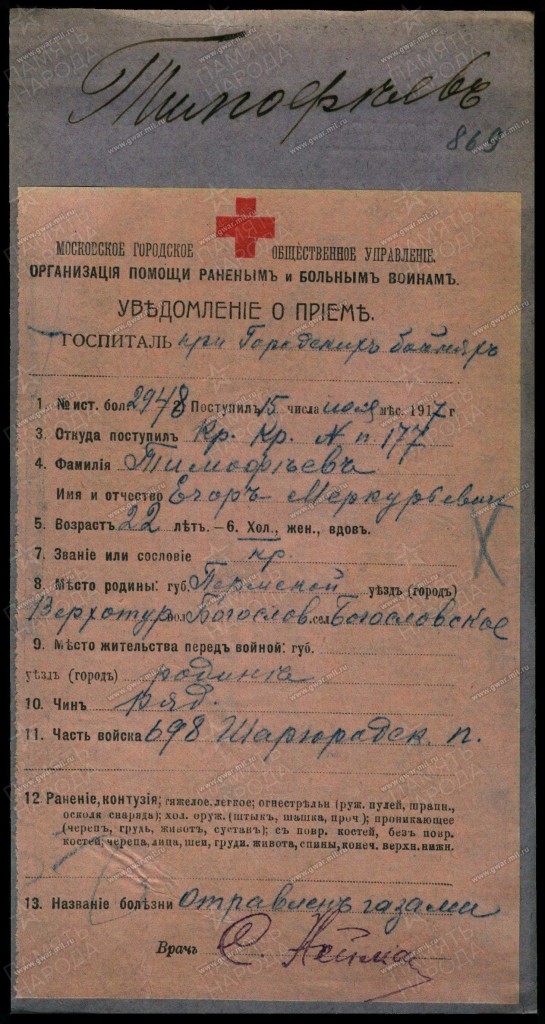 Тимофѣевъ
869
МОСКОВСКОЕ ГОРОДСКОЕ ОБЩЕСТВЕННОЕ УПРАВЛЕНІЕ.
ОРГАНИЗАЦІЯ ПОМОЩИ РАНЕНЫМЪ и БОЛЬНЫМЪ ВОИНАМЪ.
УВѢДОМЛЕНІЕ О ПРІЕМѢ.
ГОСПИТАЛЬ при Городскихъ бойняхъ
1. № ист. бол. 2948 2. Поступилъ 15 числа июля мѣс. 1917 г
3. Откуда поступилъ Кр. Кр. № п. 177
4. Фамилія Тимофѣевъ
Имя и отчество Егоръ Меркурьевич
5. Возрастъ 22 лѣтъ. – 6. Хол., жен., вдов.
7. Званіе или сословіе кр.
8. Мѣсто родины: губ. Пермской уѣздъ (городъ)
Верхотур вол. Богослов. сел. Богословское
9. Мѣсто жительства передъ войной: губ.
уѣздъ (городъ) родинѣ
10. Чинъ ряд.
11. Часть войска 698 Шаргородск. п.
12 Раненіе, контузія; тяжелое, легкое; огнестрѣльн (руж. пулей, шрапн.,
осколк снаряда); хол. оруж. (штык, шашка, проч.); проникающее
(черепъ, грудь, животъ, суставъ); съ повр. костей, безъ повр.
костей, черепа, лица, шеи, груди, живота, спины, конеч. верхн. нижн.
13. Названіе болѣзни отравленъ газами
Врачъ С.